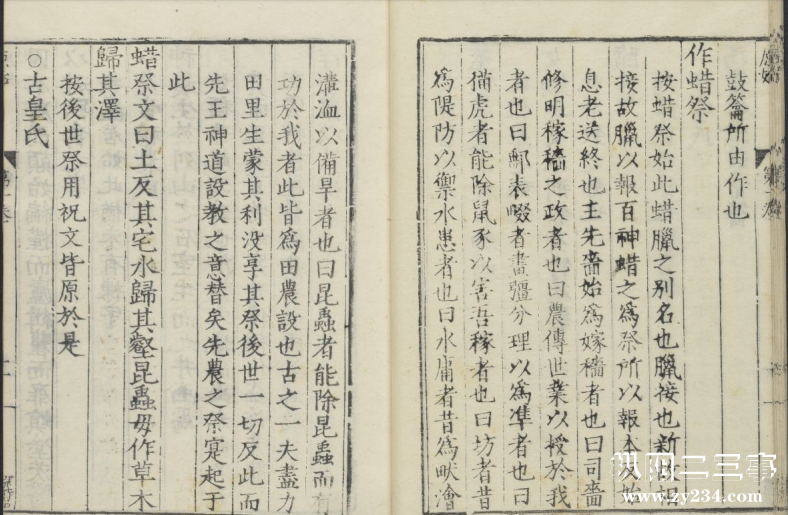 鼓籥所由作也
作蜡祭
按蜡祭始此蜡臘之别名也臘接也新故相
接故臘以報百神蜡之爲祭所以報本反始
息老送終也主先嗇始爲嫁穡者也曰司嗇
修明稼穡之政者也曰農傳世業以授於我
者也曰郵表畷者畫疆分理以爲凖者也曰
猫虎者能除鼠豕以害吾稼者也曰坊者昔
爲隄防以禦水患者也曰水庸者昔爲畎澮
灌洫以備旱者也曰昆蟲者能除昆蟲而有
功於我者此皆爲田農設也古之一夫盡力
田里生蒙其利没享其祭後世一切反此而
先王神道設教之意替矣先農之祭寔起于
此
蜡祭文曰土反其宅水歸其壑昆蟲毋作草木
歸其澤
按後世祭用祝文皆原於是
○古皇氏
枞阳二三事
www.zy234.com